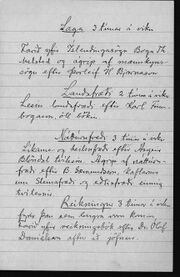 Saga 3 tímar í viku
Farið yfir Íslendingasögu Boga Th
Melsteð og ágrip af mannkyns-
sögu eftir Þorleif H Bjarnason
Landafræði 2 tíma í viku
Lesin landafræði eftir Karl Finn
bogason, öll bókin.
Náttúrufræði 3 tíma í viku
Líkams og heilsufræði eftir Ásgeir
Blöndal læknir. Ágrip af náttúru-
fræði eftir B. Sæmundsson, kaflarnir
um steinafræði og eðlisfræði
Reikningur 3 tíma í viku
farið yfir reikningsbók eftir Dr. Ólaf
Daníelsson aftur að jöfnum.